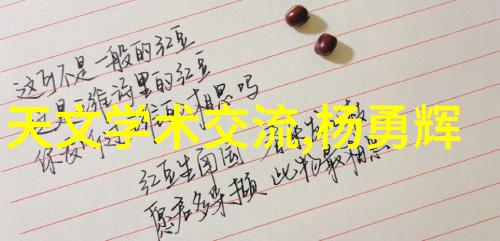 这可不是一般的红豆
这是维诗里的红豆
相思吗
天文学术交流,杨勇辉
红豆生南国 春来
愿君多采撷 此物最相思